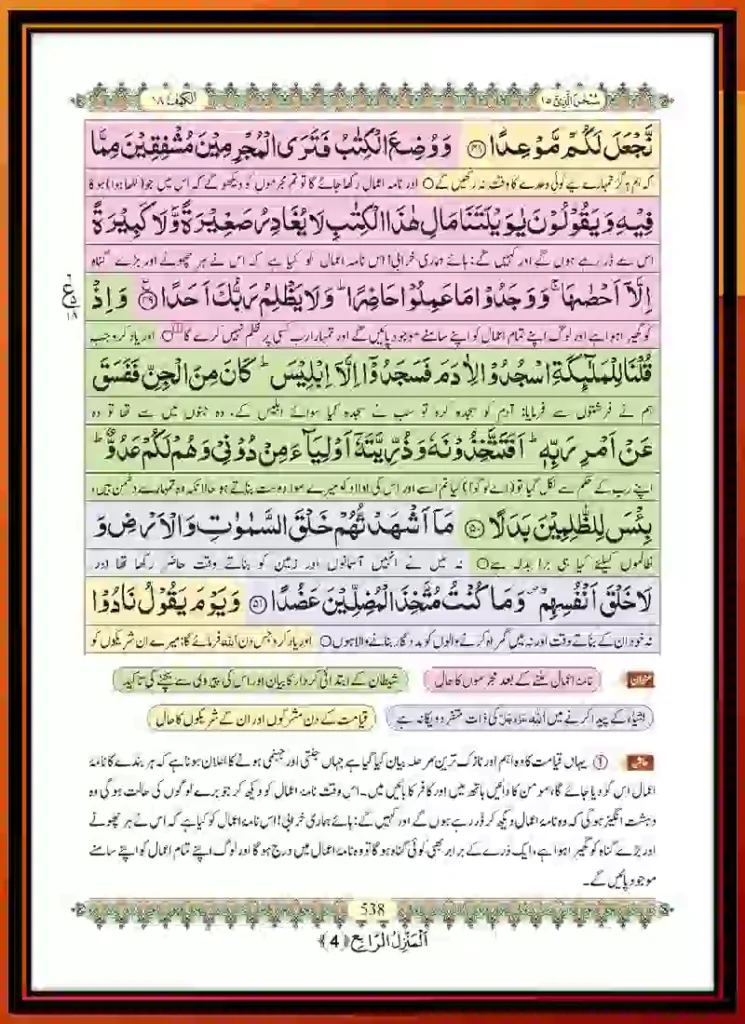 سُبْحٰنَ الَّذِیْۤ ۱۵
الکہف ۱۸
نَّجْعَلَ لَكُمْ مَّوْعِدًا ﴿۴۸﴾ وَ وُضِعَ الْكِتٰبُ فَتَرَى الْمُجْرِمِیْنَ مُشْفِقِیْنَ مِمَّا
کہ ہم ہرگز تمہارے لیے کوئی وعدے کا وقت نہ رکھیں گے ○ اور نامہ اعمال رکھا جائے گا تو تم مجرموں کو دیکھو گے کہ اس میں جو (لکھا ہوا) ہوگا
فِیْهِ وَ یَقُوْلُوْنَ یٰوَیْلَتَنَا مَالِ هٰذَا الْكِتٰبِ لَا یُغَادِرُ صَغِیْرَةً وَّ لَا كَبِیْرَةً
اس سے ڈر رہے ہوں گے اور کہیں گے: ہائے ہماری خرابی! اس نامہ اعمال کو کیا ہے کہ اس نے ہر چھوٹے اور بڑے گناہ
اِلَّاۤ اَحْصٰىهَاۚ وَ وَجَدُوْا مَا عَمِلُوْا حَاضِرًاؕ وَ لَا یَظْلِمُ رَبُّكَ اَحَدًا ﴿۴۹﴾ وَ اِذْ
کو گھیرا ہوا ہے اور لوگ اپنے تمام اعمال کو اپنے سامنے موجود پائیں گے اور تمہارا رب کسی پر ظلم نہیں کرے گا ○ اور یاد کرو جب
ع ۵ ۱۸
قُلْنَا لِلْمَلٰٓىٕكَةِ اسْجُدُوْا لِاٰدَمَ فَسَجَدُوْۤا اِلَّاۤ اِبْلِیْسَؕ كَانَ مِنَ الْجِنِّ فَفَسَقَ
ہم نے فرشتوں سے فرمایا: آدم کو سجدہ کرو تو سب نے سجدہ کیا سوائے ابلیس کے، وہ جنوں میں سے تھا تو وہ
عَنْ اَمْرِ رَبِّهٖؕ اَفَتَتَّخِذُوْنَهٗ وَ ذُرِّیَّتَهٗۤ اَوْلِیَآءَ مِنْ دُوْنِیْ وَ هُمْ لَكُمْ عَدُوٌّؕ
اپنے رب کے حکم سے نکل گیا تو (اے لوگو!) کیا تم اسے اور اس کی اولاد کو میرے سوا دوست بناتے ہو حالانکہ وہ تمہارے دشمن ہیں،
بِئْسَ لِلظّٰلِمِیْنَ بَدَلًا ﴿۵۰﴾ مَاۤ اَشْهَدْتُّهُمْ خَلْقَ السَّمٰوٰتِ وَ الْاَرْضِ وَ
ظالموں کیلئے کیا ہی برا بدلہ ہے ○ نہ میں نے انہیں آسمانوں اور زمین کو بناتے وقت حاضر رکھا تھا اور
لَا خَلْقَ اَنْفُسِهِمْ۪ وَ مَا كُنْتُ مُتَّخِذَ الْمُضِلِّیْنَ عَضُدًا ﴿۵۱﴾ وَ یَوْمَ یَقُوْلُ نَادُوْا
نہ خود ان کے بناتے وقت اور نہ میں گمراہ کرنے والوں کو مددگار بنانے والا ہوں ○ اور یاد کرو جس دن اللہ فرمائے گا: میرے ان شریکوں کو
عنوان نامۂ اعمال ملنے کے بعد مجرموں کا حال شیطان کے ابتدائی کردار کا بیان اور اس کی پیروی سے بچنے کی تاکید
اشیاء کے پیدا کرنے میں اللہ عَزَّوَجَلَّ کی ذات متفرد و یگانہ ہے قیامت کے دن مشرکوں اور ان کے شریکوں کا حال
حاشیہ ① یہاں قیامت کا وہ اہم اور نازک ترین مرحلہ بیان کیا گیا ہے جہاں جنتی اور جہنمی ہونے کا اعلان ہونا ہے کہ ہر بندے کا نامۂ
اعمال اس کو دیا جائے گا، مومن کا دائیں ہاتھ میں اور کافر کا بائیں میں۔ اس وقت نامۂ اعمال کو دیکھ کر جو برے لوگوں کی حالت ہوگی وہ
دہشت انگیز ہوگی کہ وہ نامۂ اعمال دیکھ کر ڈر رہے ہوں گے اور کہیں گے: ہائے ہماری خرابی! اس نامۂ اعمال کو کیا ہے کہ اس نے ہر چھوٹے
اور بڑے گناہ کو گھیرا ہوا ہے، ایک ذرے کے برابر بھی کوئی گناہ ہوگا تو وہ نامۂ اعمال میں درج ہوگا اور لوگ اپنے تمام اعمال کو اپنے سامنے
موجود پائیں گے۔
538
اَلْمَنْزِلُ الرَّابِعُ ﴿4﴾